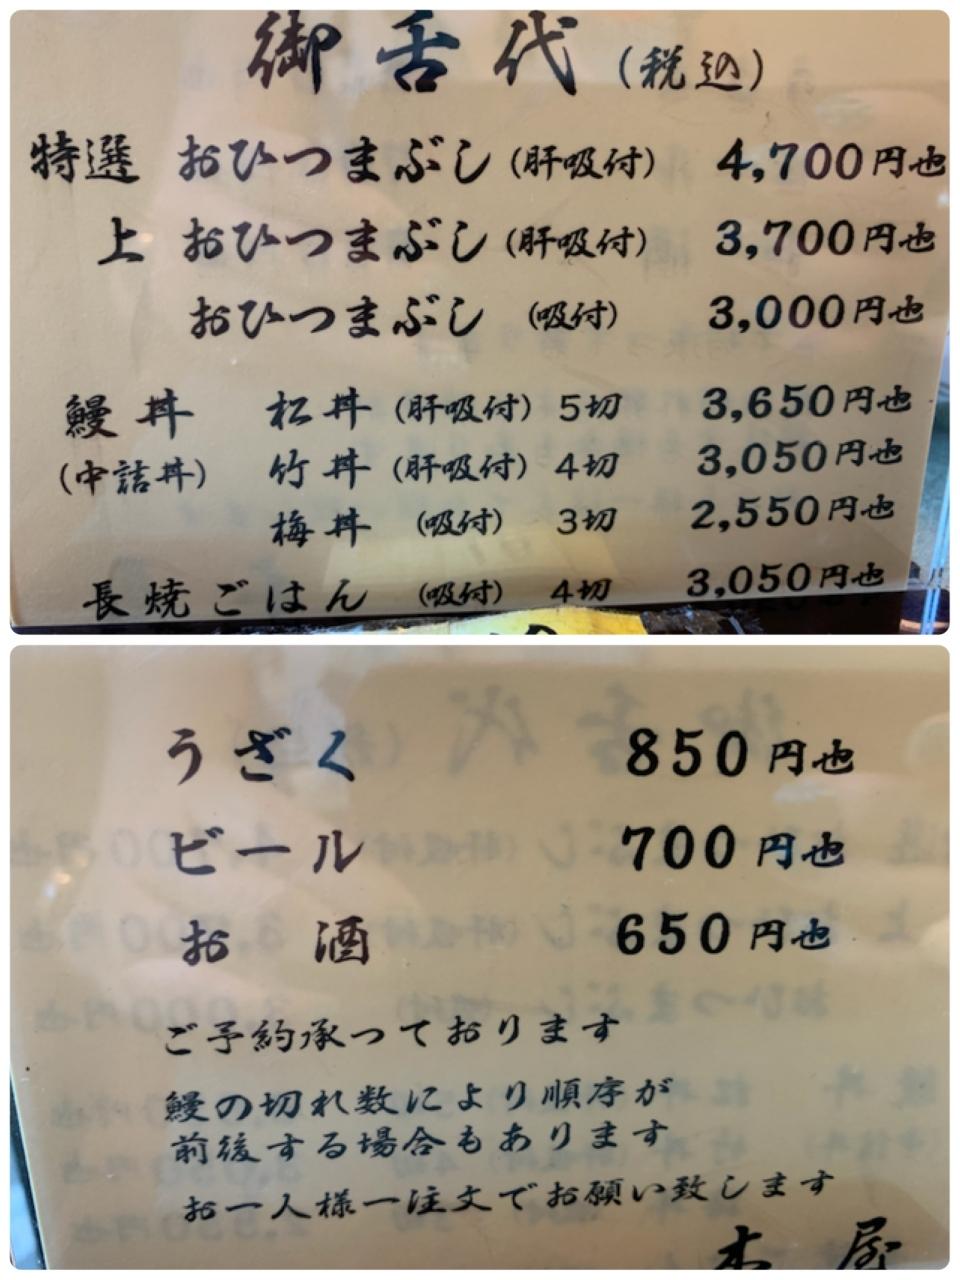 御舌代(税込)
特選 おひつまぶし(肝吸付) 4,700円也
上 おひつまぶし(肝吸付) 3,700円也
おひつまぶし(吸付) 3,000円也
鰻丼 松丼(肝吸付)5切 3,650円也
(中詰丼) 竹丼(肝吸付)4切 3,050円也
梅丼(吸付)3切 2,550円也
長焼ごはん(吸付)4切 3,050円也
うざく 850円也
ビール 700円也
お酒 650円也
ご予約承っております
鰻の切れ数により順序が
前後する場合もあります
お一人様一注文でお願い致します
木屋